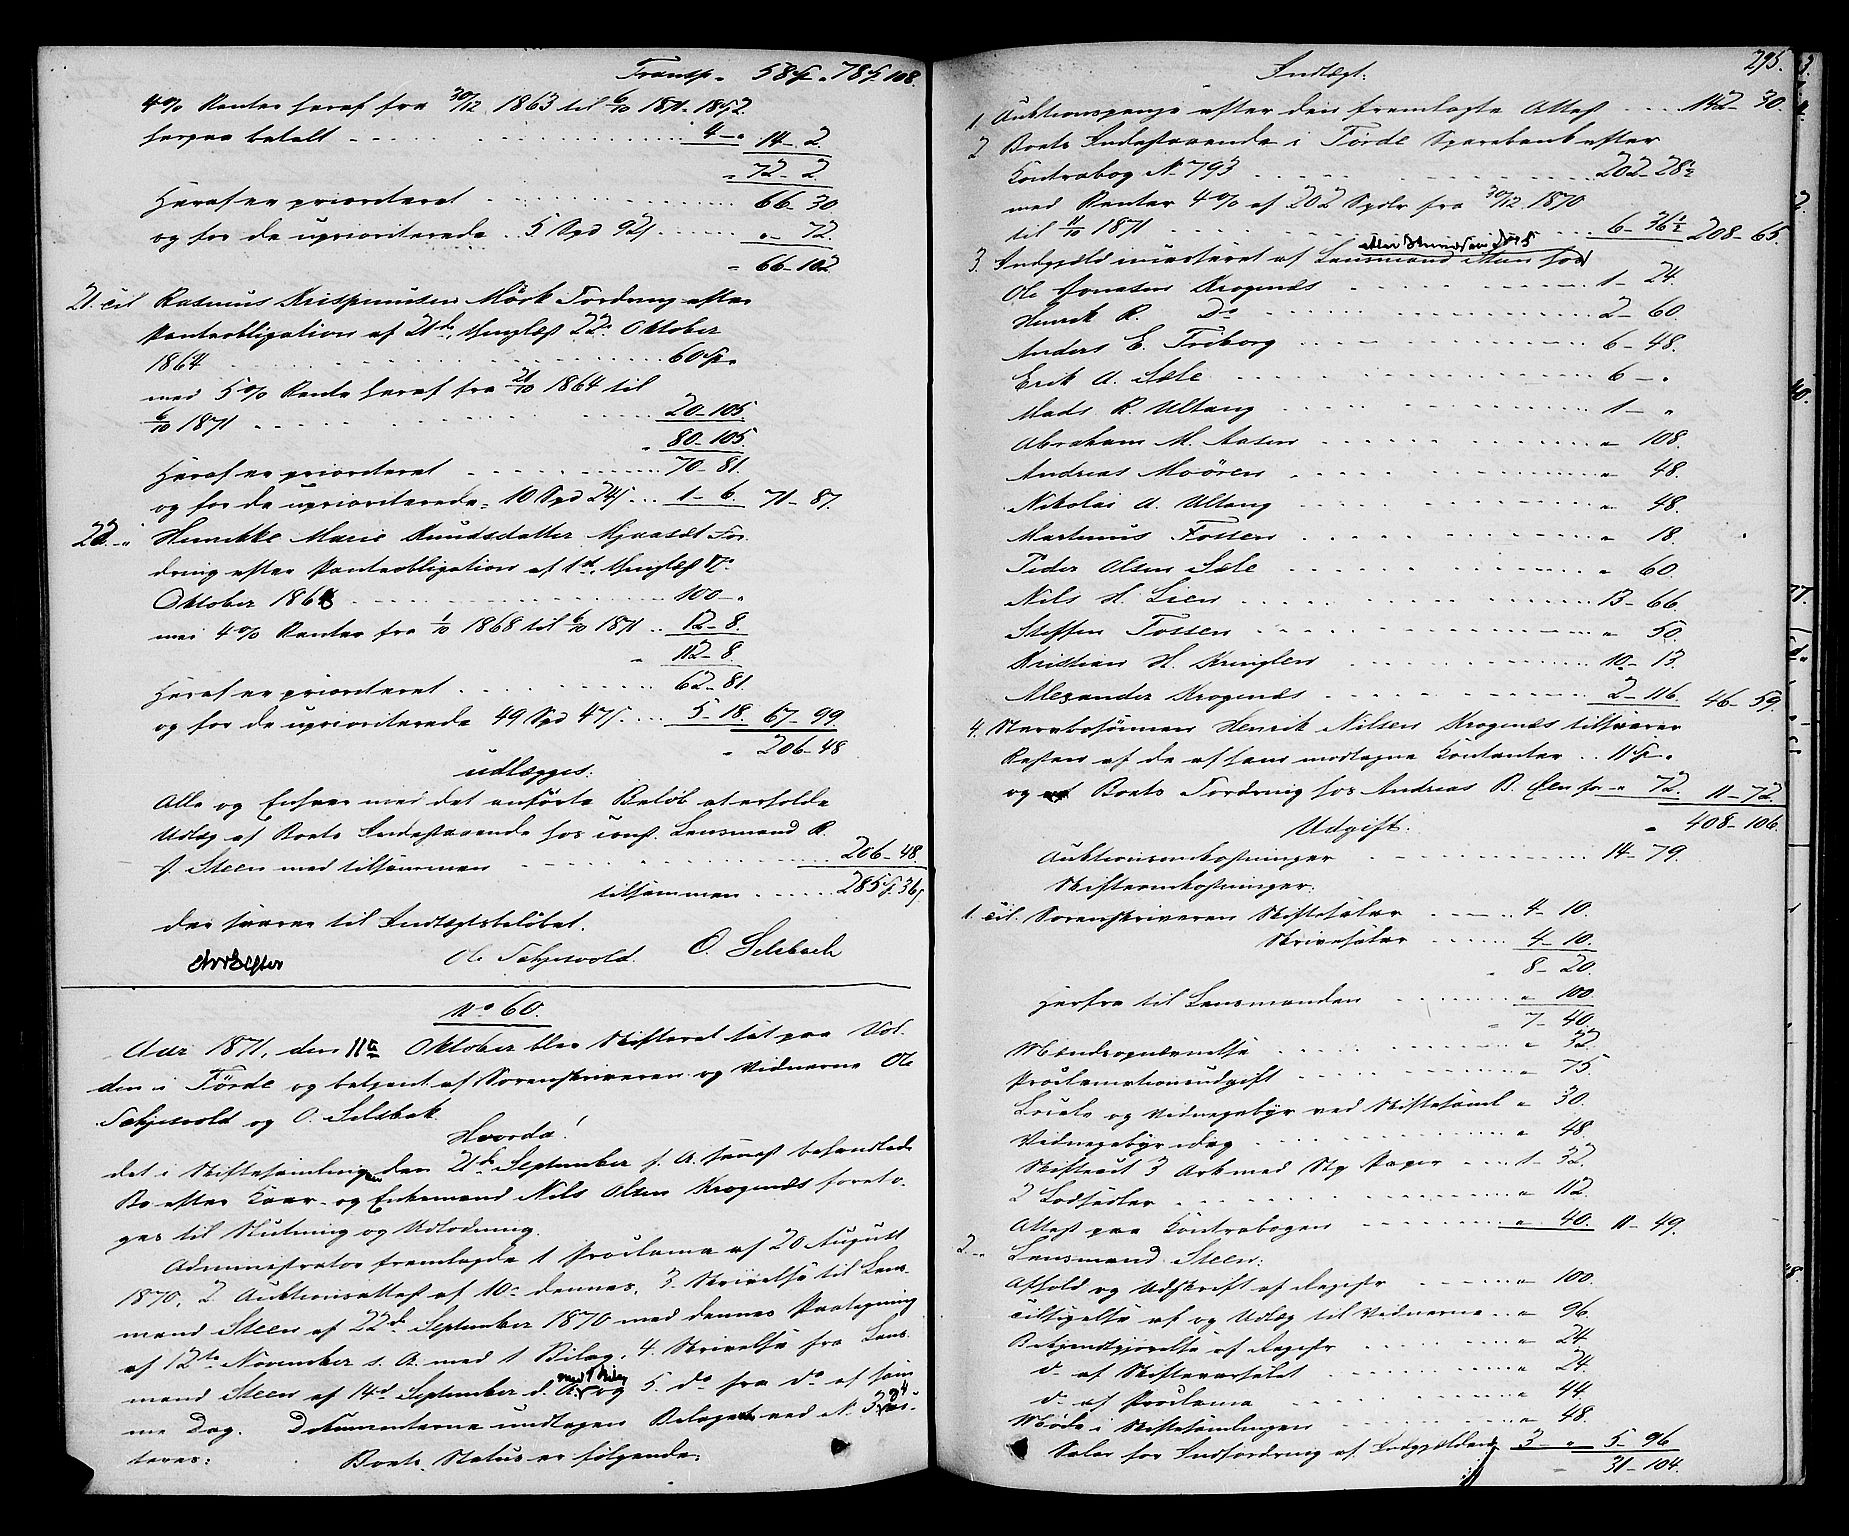 Transp. 58 Sp. 78 ß. 108.
4 % Renter heraf fra 30/12 1863 til 6/10 1871. 18 Sp 2
herpaa betalt 4 - " 14 - 2.
" 72 - 2.
Heraf er prioriteret 66 - 30
og for de uprioriterede 5 Spd 92 ß " - 72.
" 66 - 102
21. til Rasmus Krispinusen Mørk Fordring efter
Panteobligation af 21de, thinglæst 22de Oktober
1864 60 Sp.
med 5 % Rente heraf fra 21/10 1864 til
6/10 1871 20 - 105.
" 80 - 105.
Heraf er prioriteret 70 - 81.
og for de uprioriterede 10 Spd 24 ß 1 - 6. 71 - 87.
22. " Henrikke Marie Knudsdatter Mjaasæt For
dring efter Panteobligation af 1ste, thinglæst
Oktober 1868 100 - "
med 4 % Renter fra 1/10 1868 til 6/10 1871 12 - 8.
" 112 - 8
Heraf er prioriteret 62 - 81.
og for de uprioriterede 49 Spd 47 ß 5 - 18. 67 - 99.
" 206 - 48
udlægges:
Alle og Enhver med det anførte Beløb at erholde
Udlæg af Boets Indestaaende hos const. Lensmand R.
J. Steen med tilsammen 206 - 48.
tilsammen 285 Sp. 36 ß
der svarer til Indtægtsbeløbet.
Ole Takjesvold. O. Selsbak
No 60.
Aar 1871, den 11te Oktober blev Skifteret sat paa Vol
den i Førde og betjent af Sorenskriveren og Vidnerne Ole
Takjesvold og O. Selsbak
Hvorda!
det i Skiftesamlingen den 21de September f. A. sidst behandlede
Bo efter Kaar- og Enkemand Nils Olsen Krogenæs foreto-
ges til Slutning og Udlodning.
Administrator fremlagde 1 Proclama af 20 August
1870, 2 Auktionsattest af 10de dennes, 3. Skrivelse til Lens-
mand Steen af 22de September 1870 med dennes Paategning
af 12te November s. A. med 1 Bilag, 4. Skrivelse fra Lens
mand Steen af 14de September d. A. med 1 Bilag og 5. do fra do af sam
me Dag. Dokumenterne undtagen Bilaget ved N. 3 og 4
teres:
Boets Status er følgende:
295.
Indtægt:
1. Auktionspenge efter den fremlagte Attest 142 - 30.
2 Boets Indestaaende i Førde Sparebank efter
Kontrabog N. 793 202 - 28½
med Renter 4 % af 202 Spdlr fra 30/12 1870
til 11/10 1871 6 - 36½ 208 - 65.
3. Indgjæld inkasseret af Lensmand Steen hos
Ole Jonasen Krogenæs 1 - 24.
Henrik R. Do 2 - 60.
Anders E. Friborg 6 - 48.
Erik A. Sæle 6 - "
Mads R. Ultang 1 - "
Abraham M. Aasen " 108.
Andreas Moøren " 48.
Nikolai A. Ultang " 48.
Martinus Fossen " 18.
Peder Olsen Sæle " 60.
Nils H. Lien 13 - 66
Steffen Fossen " 50.
Kristian H. Kringlen 10 - 13.
Alexander Krogenæs 2 - 116. 46 - 59.
4. Stervbosønnen Henrik Nilsen Krogenæs tilsvarer
Resten af de af ham modtagne Kontanter 11 Sp "
og Boets Fordring hos Andreas B. Øen for " 72. 11 - 72.
" 408 - 106.
Udgift:
Auktionsomkostninger 14 - 79.
Skifteomkostninger:
1. til Sorenskriveren Skiftesalær 4 - 10.
Skrivesalær 4 - 10.
" 8 - 20.
herfra til Lensmanden " 100.
" 7 - 40.
Mændsopnævnelse " 32.
Proclamationsudgift " 75
Locale og Vidnegebyr ved Skiftesaml " 30.
Vidnegebyr idag " 48.
Skifteact 3 Ark med Stp Papir 1 - 32.
2 Lodsedler " 112.
Attest paa Kontrabogen " 40. 11 - 49.
2. " Lensmand Steen:
Afhold og Udskrift af Registr " 100.
Tilsigelse af og Udlæg til Vidnerne " 96.
Bekjendtgjørelse af Registr " 24
do af Skiftevarselet " 24.
do af Proclama " 44
Møde i Skiftesamlingen " 48.
Salær for Indfordring af Indgjælden 3 - " 5 - 96
31 - 104.